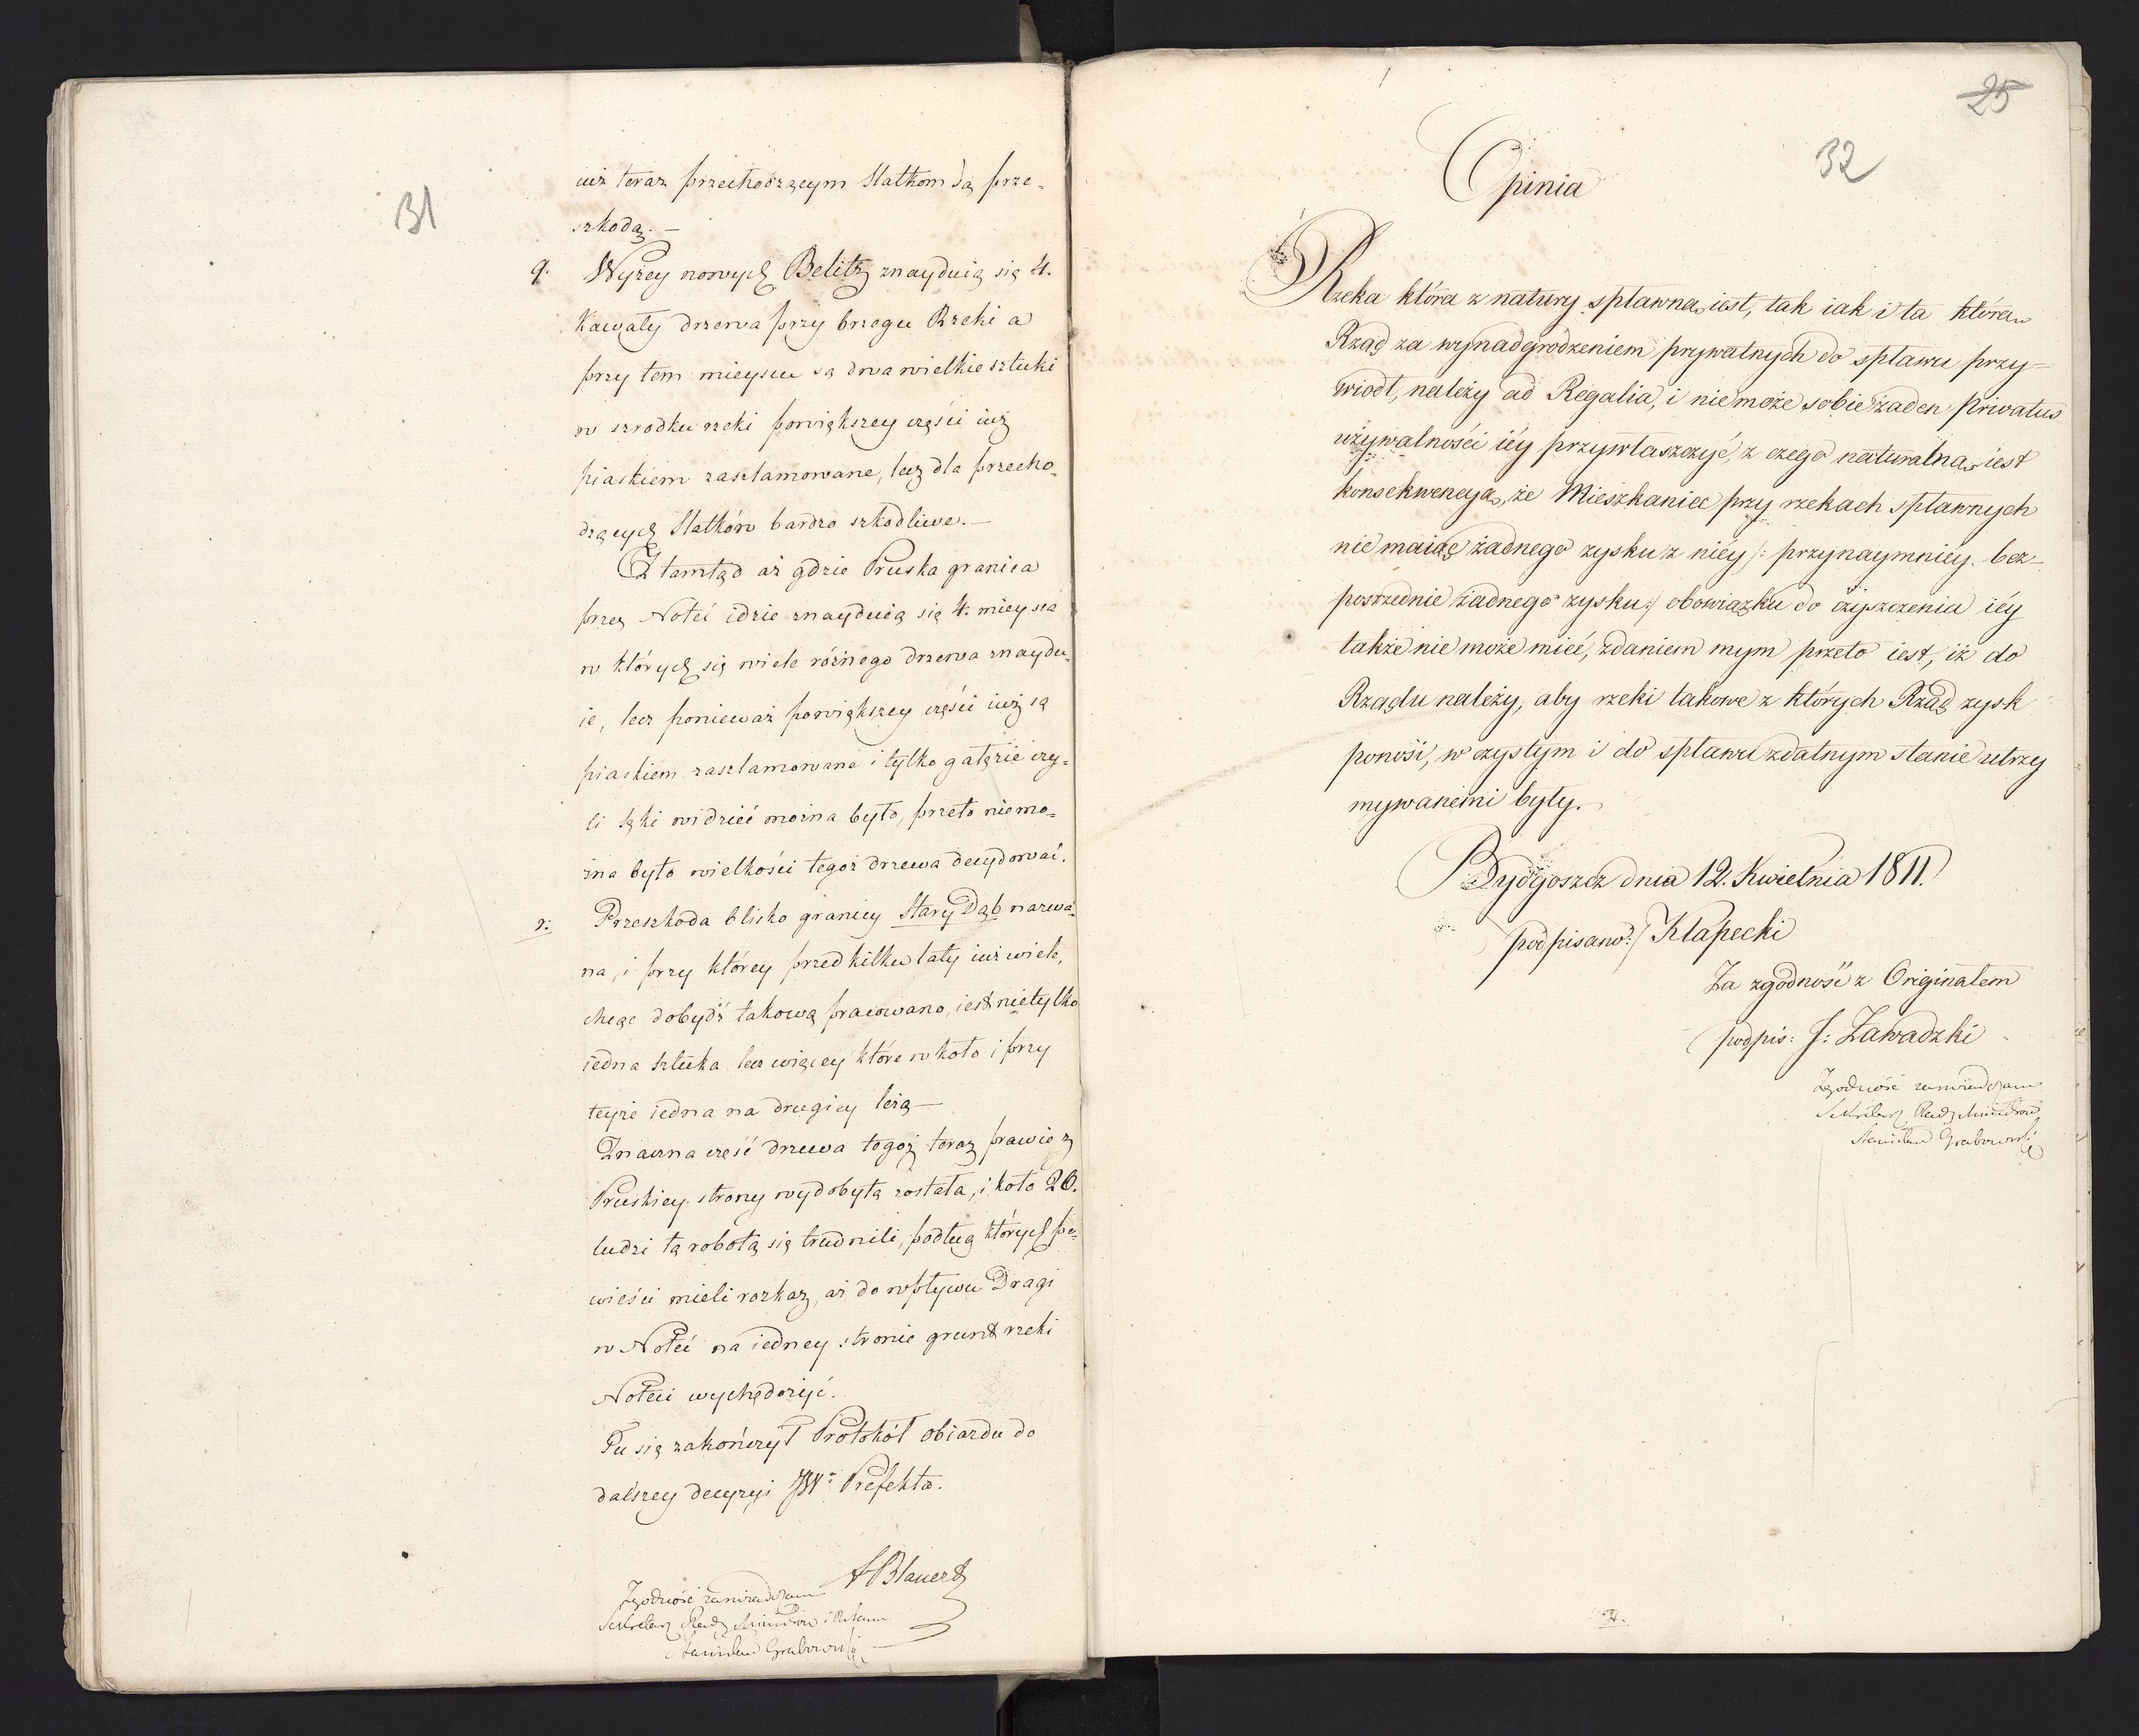 31
iuż teraz przechodzącym Statkom są prze-
szkodą. —
q. Wyżey nowych Belitz znayduią się 4.
Kawały drzewa przy brzegu Rzeki a
przy tem mieyscu są dwa wielkie sztuki
w szrodku rzeki powiększey części iuż
piaskiem zaszlamowane, lecz dla przecho-
dzących Statków bardzo szkodliwe. —
Z tamtąd aż gdzie Pruska granica
przez Noteć idzie znayduią się 4. mieysca
w których się wiele różnego drzewa znaydu-
ie, lecz ponieważ powiększey części iuż są
piaskiem zaszlamowane i tylko gałęzie czy-
li sęki widzieć można było, przeto niemo-
żna było wielkości tegoż drzewa decydować.
r: Przeszkoda blisko granicy Stary Dąb nazwa-
na, i przy którey przed kilku laty iuż wiele,
chcąc dobydź takową pracowano, iest nietylko
iedna sztuka lecz więcey które w koło i przy
teyże iedna na drugiey leżą —
Znaczna część drzewa tegoż teraz prawie z
Pruskiey strony wydobytą została, i koło 20.
ludzi tą robotą się trudnili, podług których po-
wieści mieli rozkaz, aż do wpływu Dragi
w Noteć na iedney stronie grunt rzeki
Noteci wychędożyć.
Tu się zakończył Protokół obiazdu do
dalszey decyzyi JW: Prefekta.
Blauert
Zgodność zaświadczam
Sekretarz Rady Ministrów
Stanisław Grabowski
25
32
Opinia
Rzeka która z natury spławna iest, tak iak i ta którą
Rząd za wynadgrodzeniem prywatnych do spławu przy-
wiodł, należy ad Regalia, i niemoże sobie żaden privatus
używalności iéy przywłaszczyć, z czego naturalna iest
konsekwencya, że Mieszkaniec przy rzekach spławnych
nie maiąc żadnego zysku z niéy /: przynaymniéy bez-
posrzednie żadnego zysku :/ obowiązku do czyszczenia iéy
także nie może mieć, zdaniem mym przeto iest, iż do
Rządu należy, aby rzeki takowe z których Rząd zysk
ponosi, w czystym i do spławu zdatnym stanie utrzy
mywanemi były.
Bydgoszcz dnia 12. Kwietnia 1811.
podpisano: / Kłapecki
Za zgodność z Originałem
podpis: J: Zawadzki
Zgodność zaświadczam
Sekretarz Rady Ministrów
Stanisław Grabowski